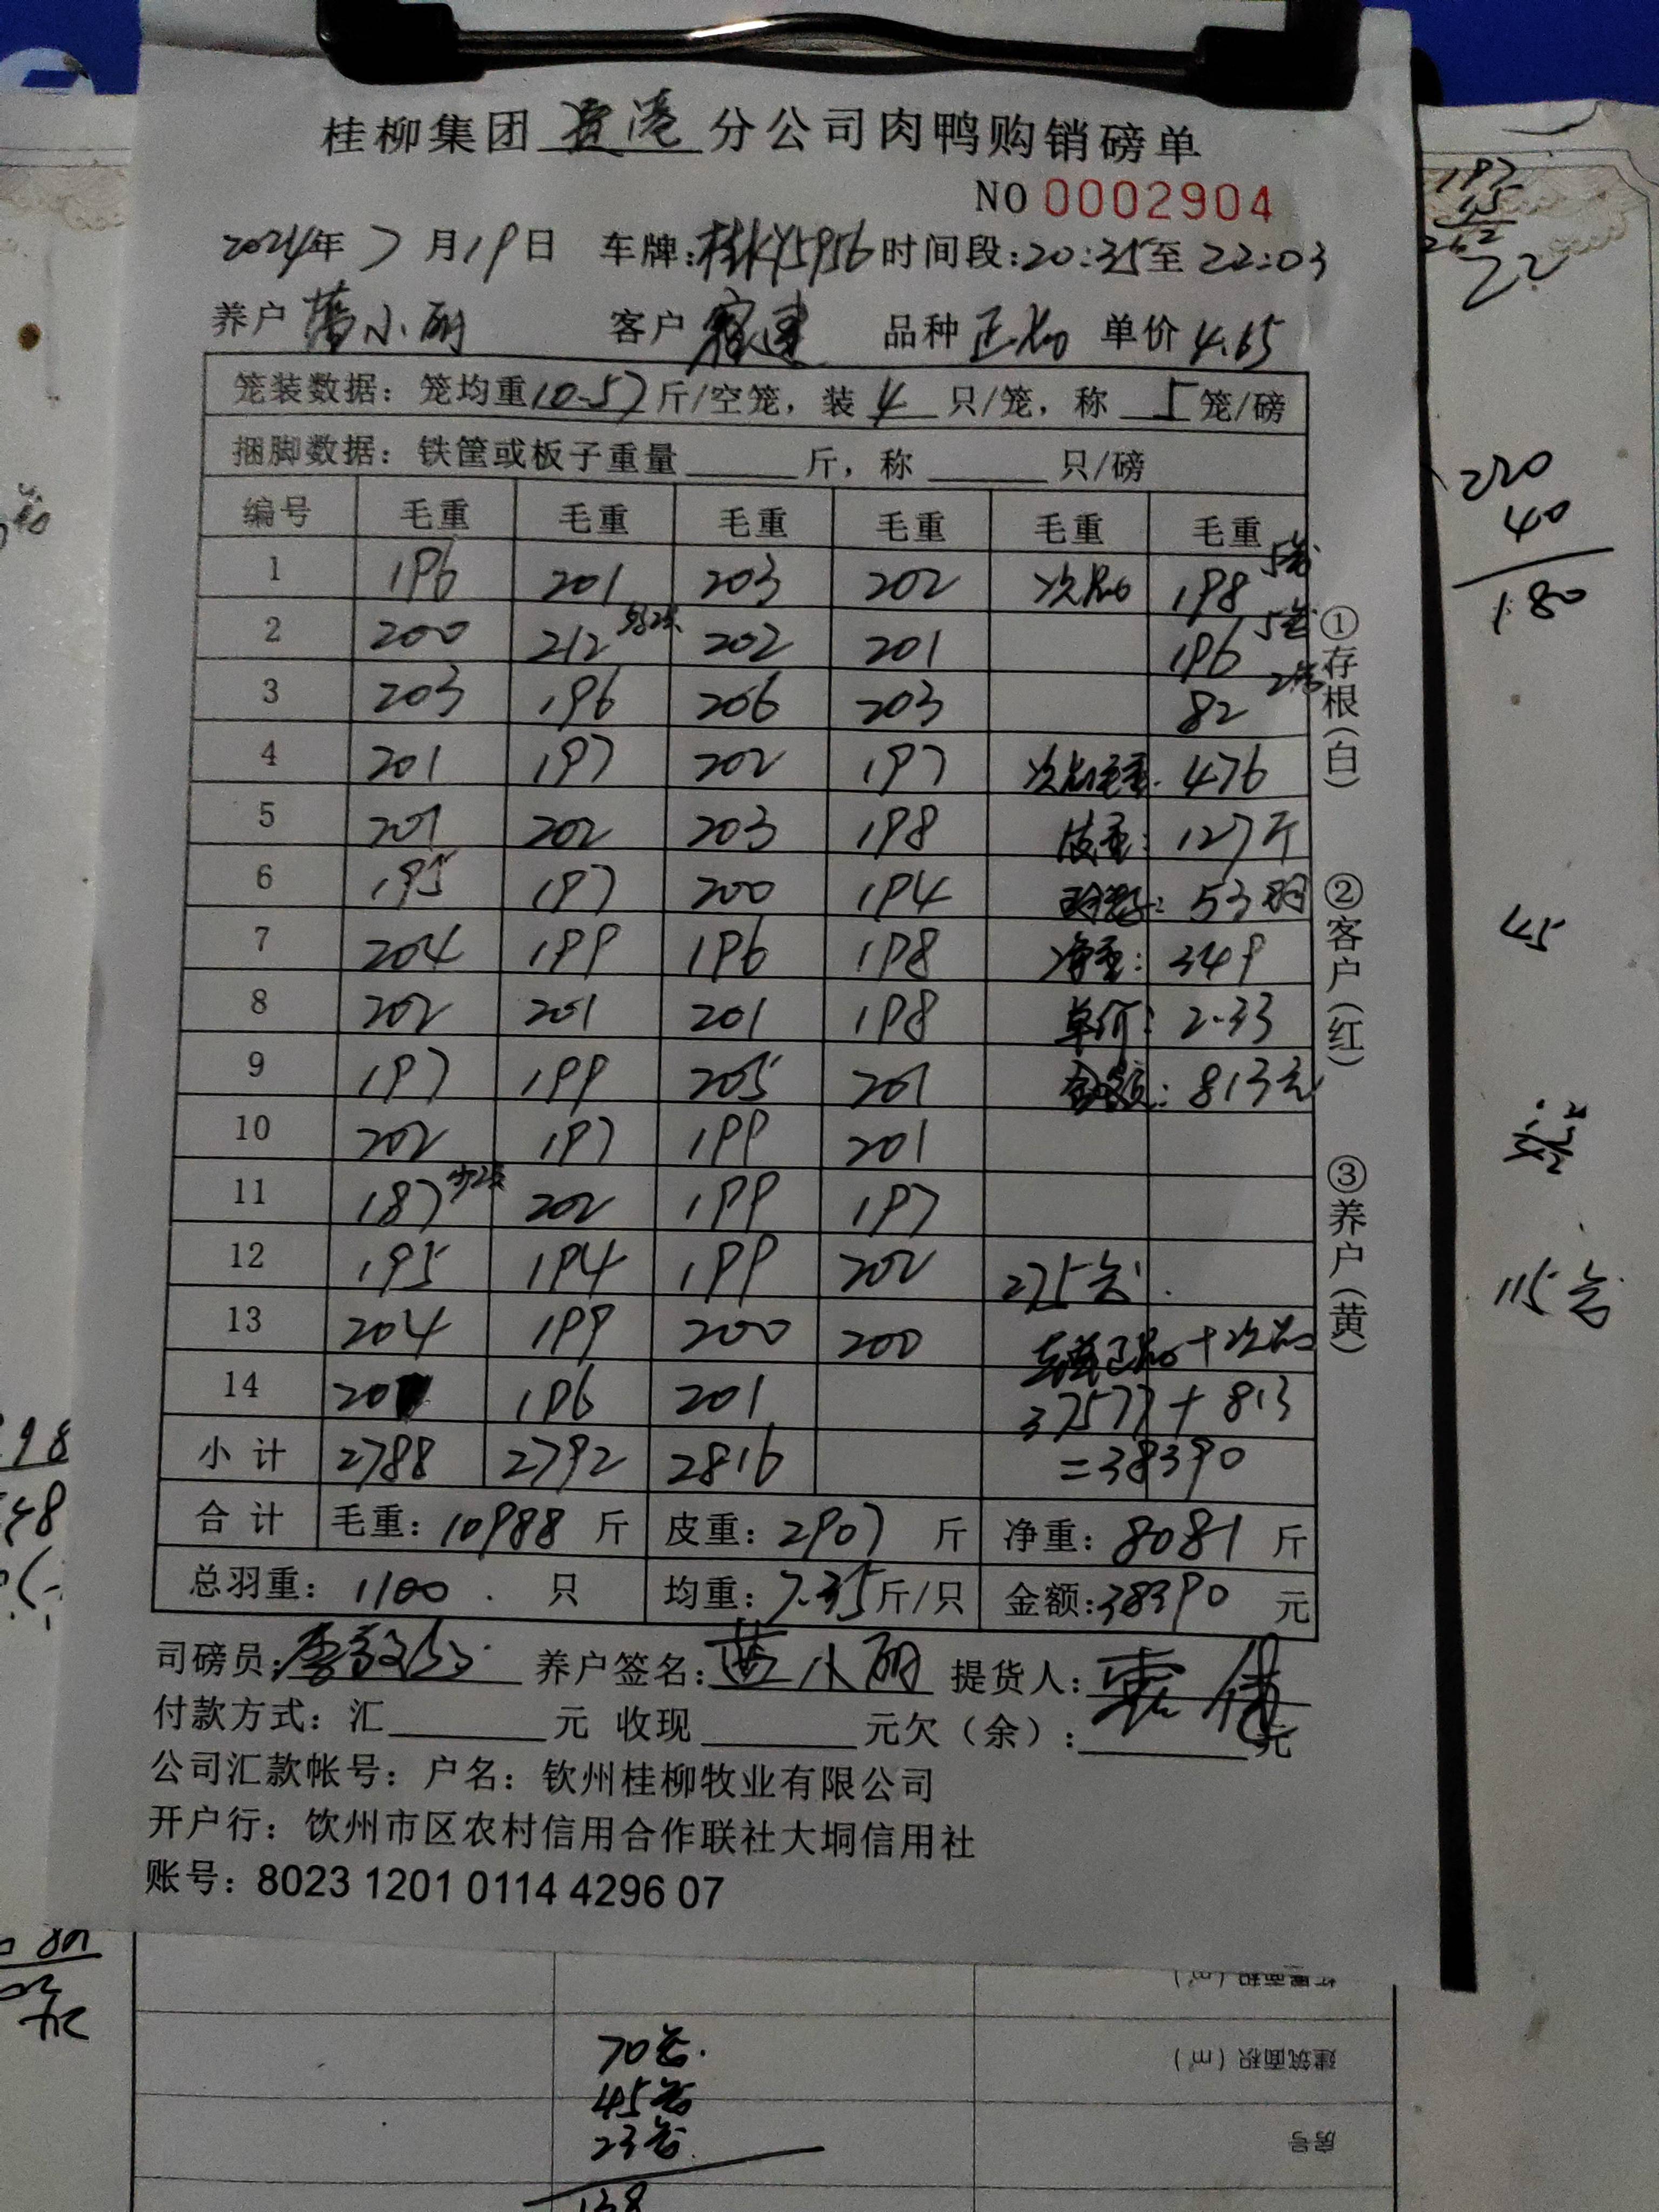 桂柳集团 贵港 分公司肉鸭购销磅单
NO 0002904
2024年 7 月 19 日 车牌:桂KY5956 时间段:20:35至 22:03
养户 小丽 客户 品种 正品 单价 4.65
笼装数据: 笼均重10.57斤/空笼, 装 4 只/笼, 称 5 笼/磅
捆脚数据: 铁筐或板子重量 斤, 称 只/磅
编号 毛重 毛重 毛重 毛重 毛重 毛重
1 196 201 203 202 次品 198 5笼
2 200 212 202 201 196 5笼
3 203 196 206 203 82 2笼
4 201 197 202 197 次品毛重: 476
5 201 202 203 198 皮重: 127斤
6 195 197 200 194 53羽
7 204 199 196 198 净重: 349
8 202 201 201 198 单价: 2.33
9 197 199 205 201 金额: 813元
10 202 197 199 201
11 187 202 199 197
12 195 194 199 202 275笼
13 204 199 200 200 正品+次品
14 201 196 201 37577+813
小 计 2788 2792 2816 =38390
合 计 毛重: 10988 斤 皮重: 2907 斤 净重: 8081 斤
总羽重: 1100 只 均重: 7.35斤/只 金额:38390 元
司磅员: 养户签名: 小丽 提货人:
付款方式: 汇 元 收现 元欠(余): 元
公司汇款帐号: 户名: 钦州桂柳牧业有限公司
开户行: 饮州市区农村信用合作联社大垌信用社
账号: 8023 1201 0114 4296 07
①存根(白)
②客户(红)
③养户(黄)
22
220
40
180
45
115笼
70笼
45笼
23笼
138
建筑面积(㎡)
房号